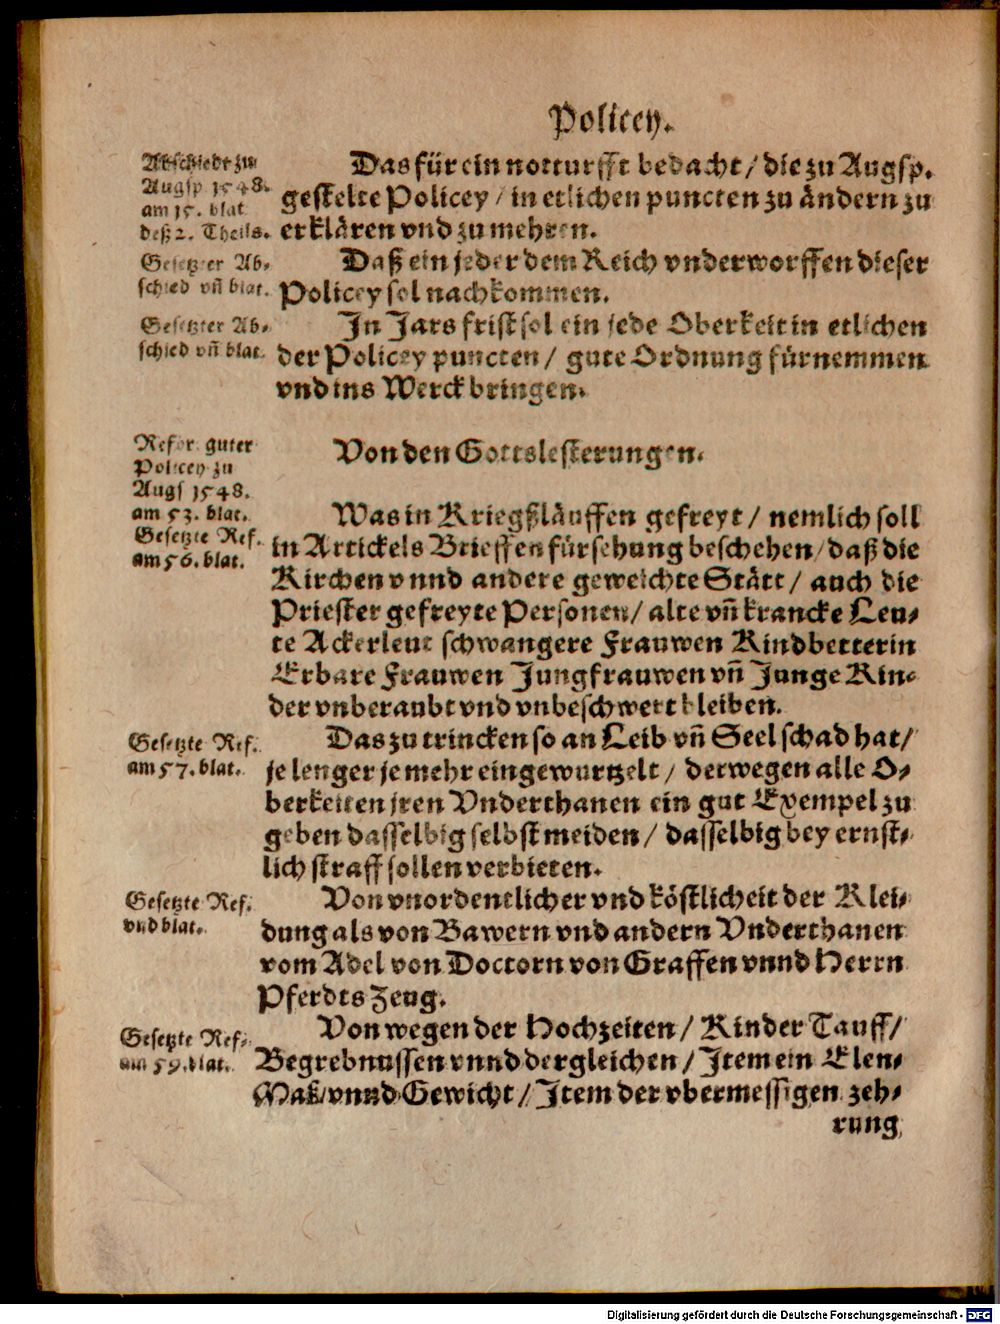 Policey.
Abschiedt zu
Augsp. 1548.
am 15. blat
deß 2. Theils.
Das für ein notturfft bedacht / die zu Augsp.
gestelte Policey / in etlichen puncten zu ändern zu
erklären vnd zu mehren.
Gesetzter Ab-
schied vñ blat.
Daß ein jeder dem Reich vnderworffen dieser
Policey sol nachkommen.
Gesetzter Ab-
schied vñ blat.
In Jars frist sol ein jede Oberkeit in etlichen
der Policey puncten / gute Ordnung fürnemmen
vnd ins Werck bringen.
Refor. guter
Policey zu
Augs 1548.
am 53. blat.
Von den Gottslesterungen.
Gesetzte Ref.
am 56. blat.
Was in Kriegßläuffen gefreyt / nemlich soll
in Artickels Brieffen fürsehung beschehen / daß die
Kirchen vnnd andere geweichte Stätt / auch die
Priester gefreyte Personen / alte vñ krancke Leu-
te Ackerleut schwangere Frauwen Kindbetterin
Erbare Frauwen Jungfrauwen vñ Junge Kin-
der vnberaubt vnd vnbeschwert bleiben.
Gesetzte Ref.
am 57. blat.
Das zu trincken so an Leib vñ Seel schad hat /
je lenger je mehr eingewurtzelt / derwegen alle O-
berkeiten jren Vnderthanen ein gut Exempel zu
geben dasselbig selbst meiden / dasselbig bey ernst-
lich straff sollen verbieten.
Gesetzte Ref.
vnd blat.
Von vnordentlicher vnd köstlicheit der Klei-
dung als von Bawern vnd andern Vnderthanen
vom Adel von Doctorn von Graffen vnnd Herrn
Pferdts Zeug.
Gesetzte Ref.
am 59. blat.
Von wegen der Hochzeiten / Kinder Tauff /
Begrebnussen vnnd dergleichen / Item ein Elen-
Maß / vnnd Gewicht / Item der vbermessigen zeh-
rung
Digitalisierung gefördert durch die Deutsche Forschungsgemeinschaft - DFG